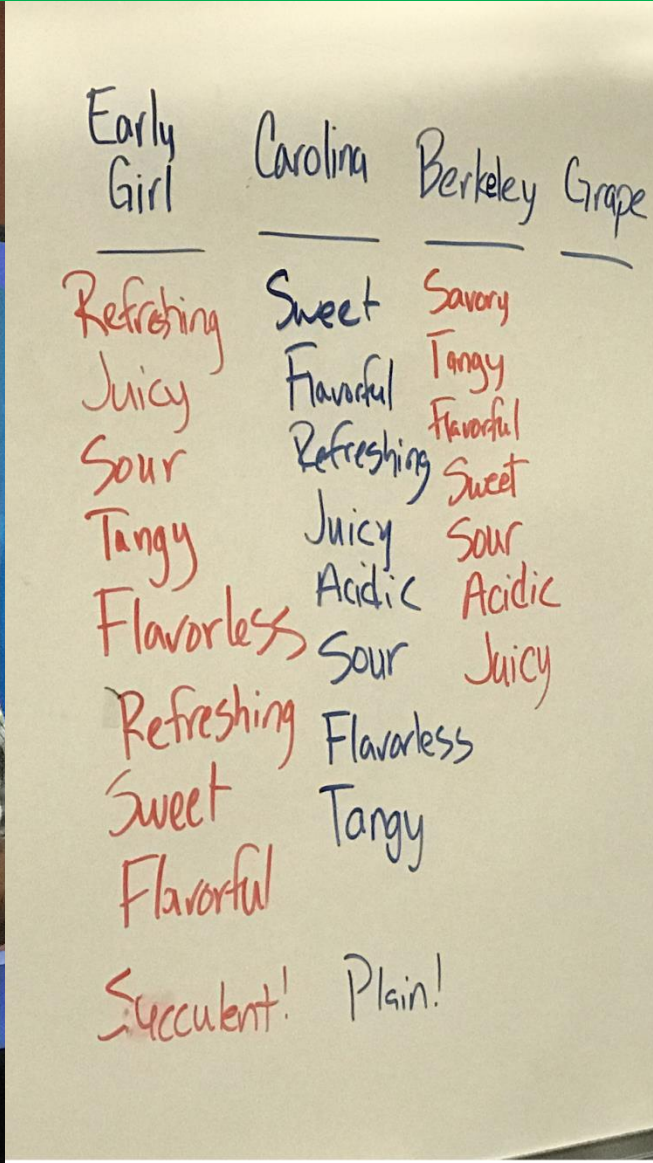 Early
Girl
Refreshing
Juicy
Sour
Tangy
Flavorless
Refreshing
Sweet
Flavorful
Succulent!
Carolina
Sweet
Flavorful
Refreshing
Juicy
Acidic
Sour
Flavorless
Tangy
Plain!
Berkeley
Savory
Tangy
Flavorful
Sweet
Sour
Acidic
Juicy
Grape